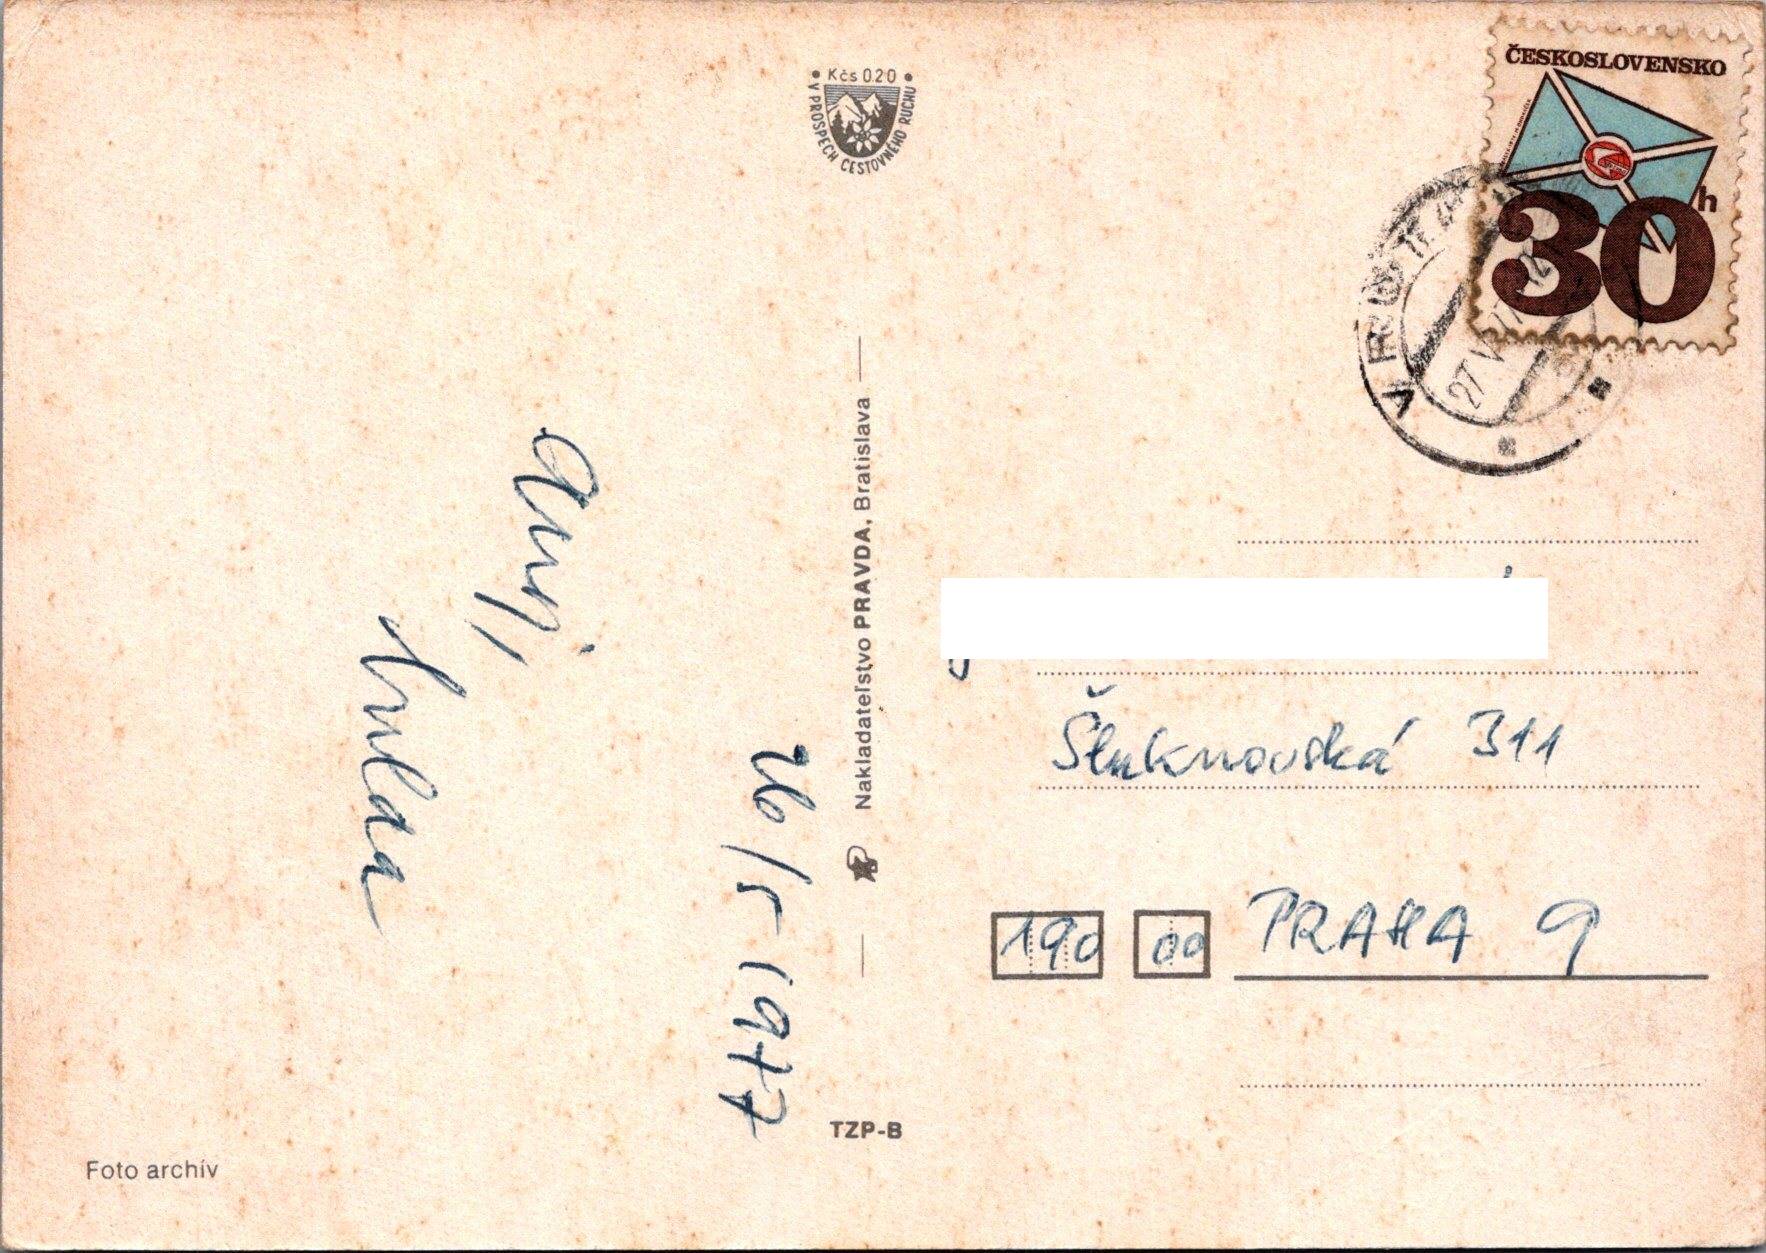 Kčs 0.20
V PROSPECH CESTOVNÉHO RUCHU
ČESKOSLOVENSKO
30 h
27 V
26/5 1977
Nakladateľstvo PRAVDA, Bratislava
Šluknovská 311
190 00 PRAHA 9
TZP-B
Foto archív